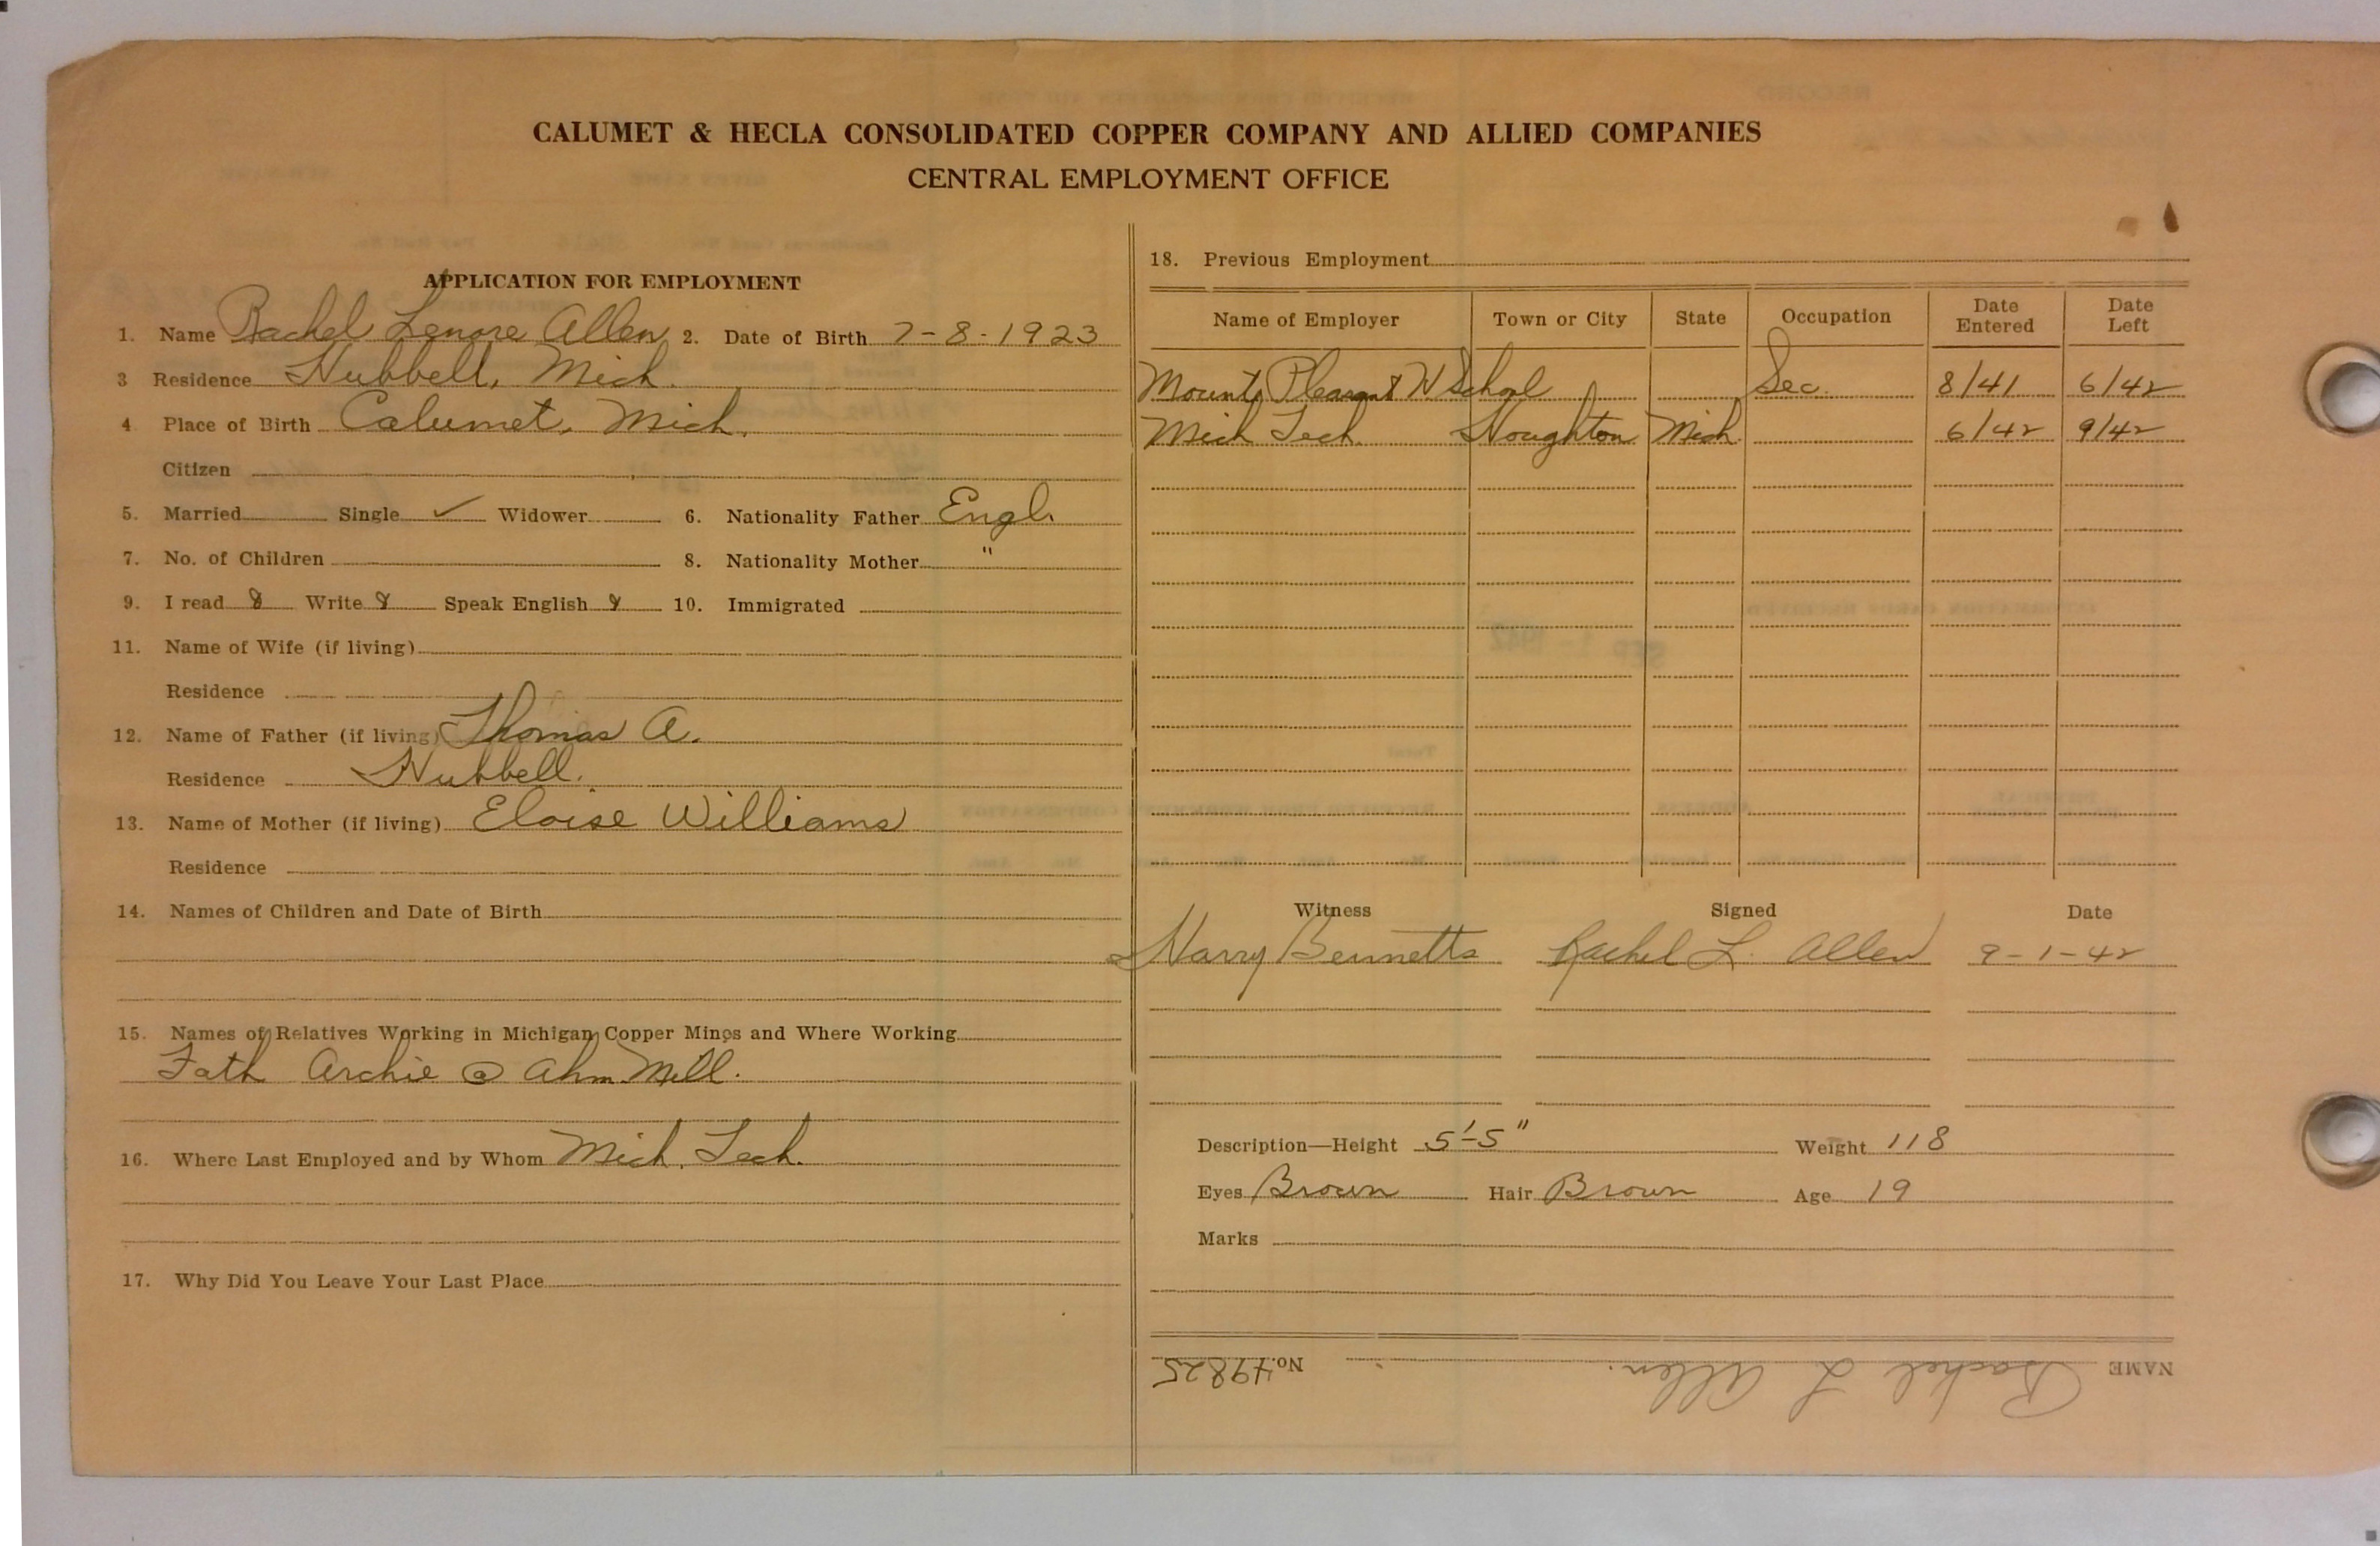 CALUMET & HECLA CONSOLIDATED COPPER COMPANY AND ALLIED COMPANIES
CENTRAL EMPLOYMENT OFFICE
APPLICATION FOR EMPLOYMENT
1. Name Rachel Lenore Allen 2. Date of Birth 7-8-1923
3 Residence Hubbell, Mich.
4 Place of Birth Calumet, Mich.
Citizen
5. Married Single ✓ Widower 6. Nationality Father Engl.
7. No. of Children 8. Nationality Mother "
9. I read Write Speak English 10. Immigrated
11. Name of Wife (if living)
Residence
12. Name of Father (if living) Thomas A.
Residence Hubbell.
13. Name of Mother (if living) Eloise Williams
Residence
14. Names of Children and Date of Birth
15. Names of Relatives Working in Michigan Copper Mines and Where Working
Fath Archie @ Ahm. Mill.
16. Where Last Employed and by Whom Mich. Tech.
17. Why Did You Leave Your Last Place
18. Previous Employment
Name of Employer Town or City State Occupation Date Entered Date Left
Mount Pleasant H School Sec. 8/41 6/42
Mich Tech. Houghton Mich 6/42 9/42
Witness Signed Date
Harry Bennetts Rachel L. Allen 9-1-42
Description—Height 5'-5" Weight 118
Eyes Brown Hair Brown Age 19
Marks
NAME Rachel L Allen. No. 49825
SEP 1- 1942